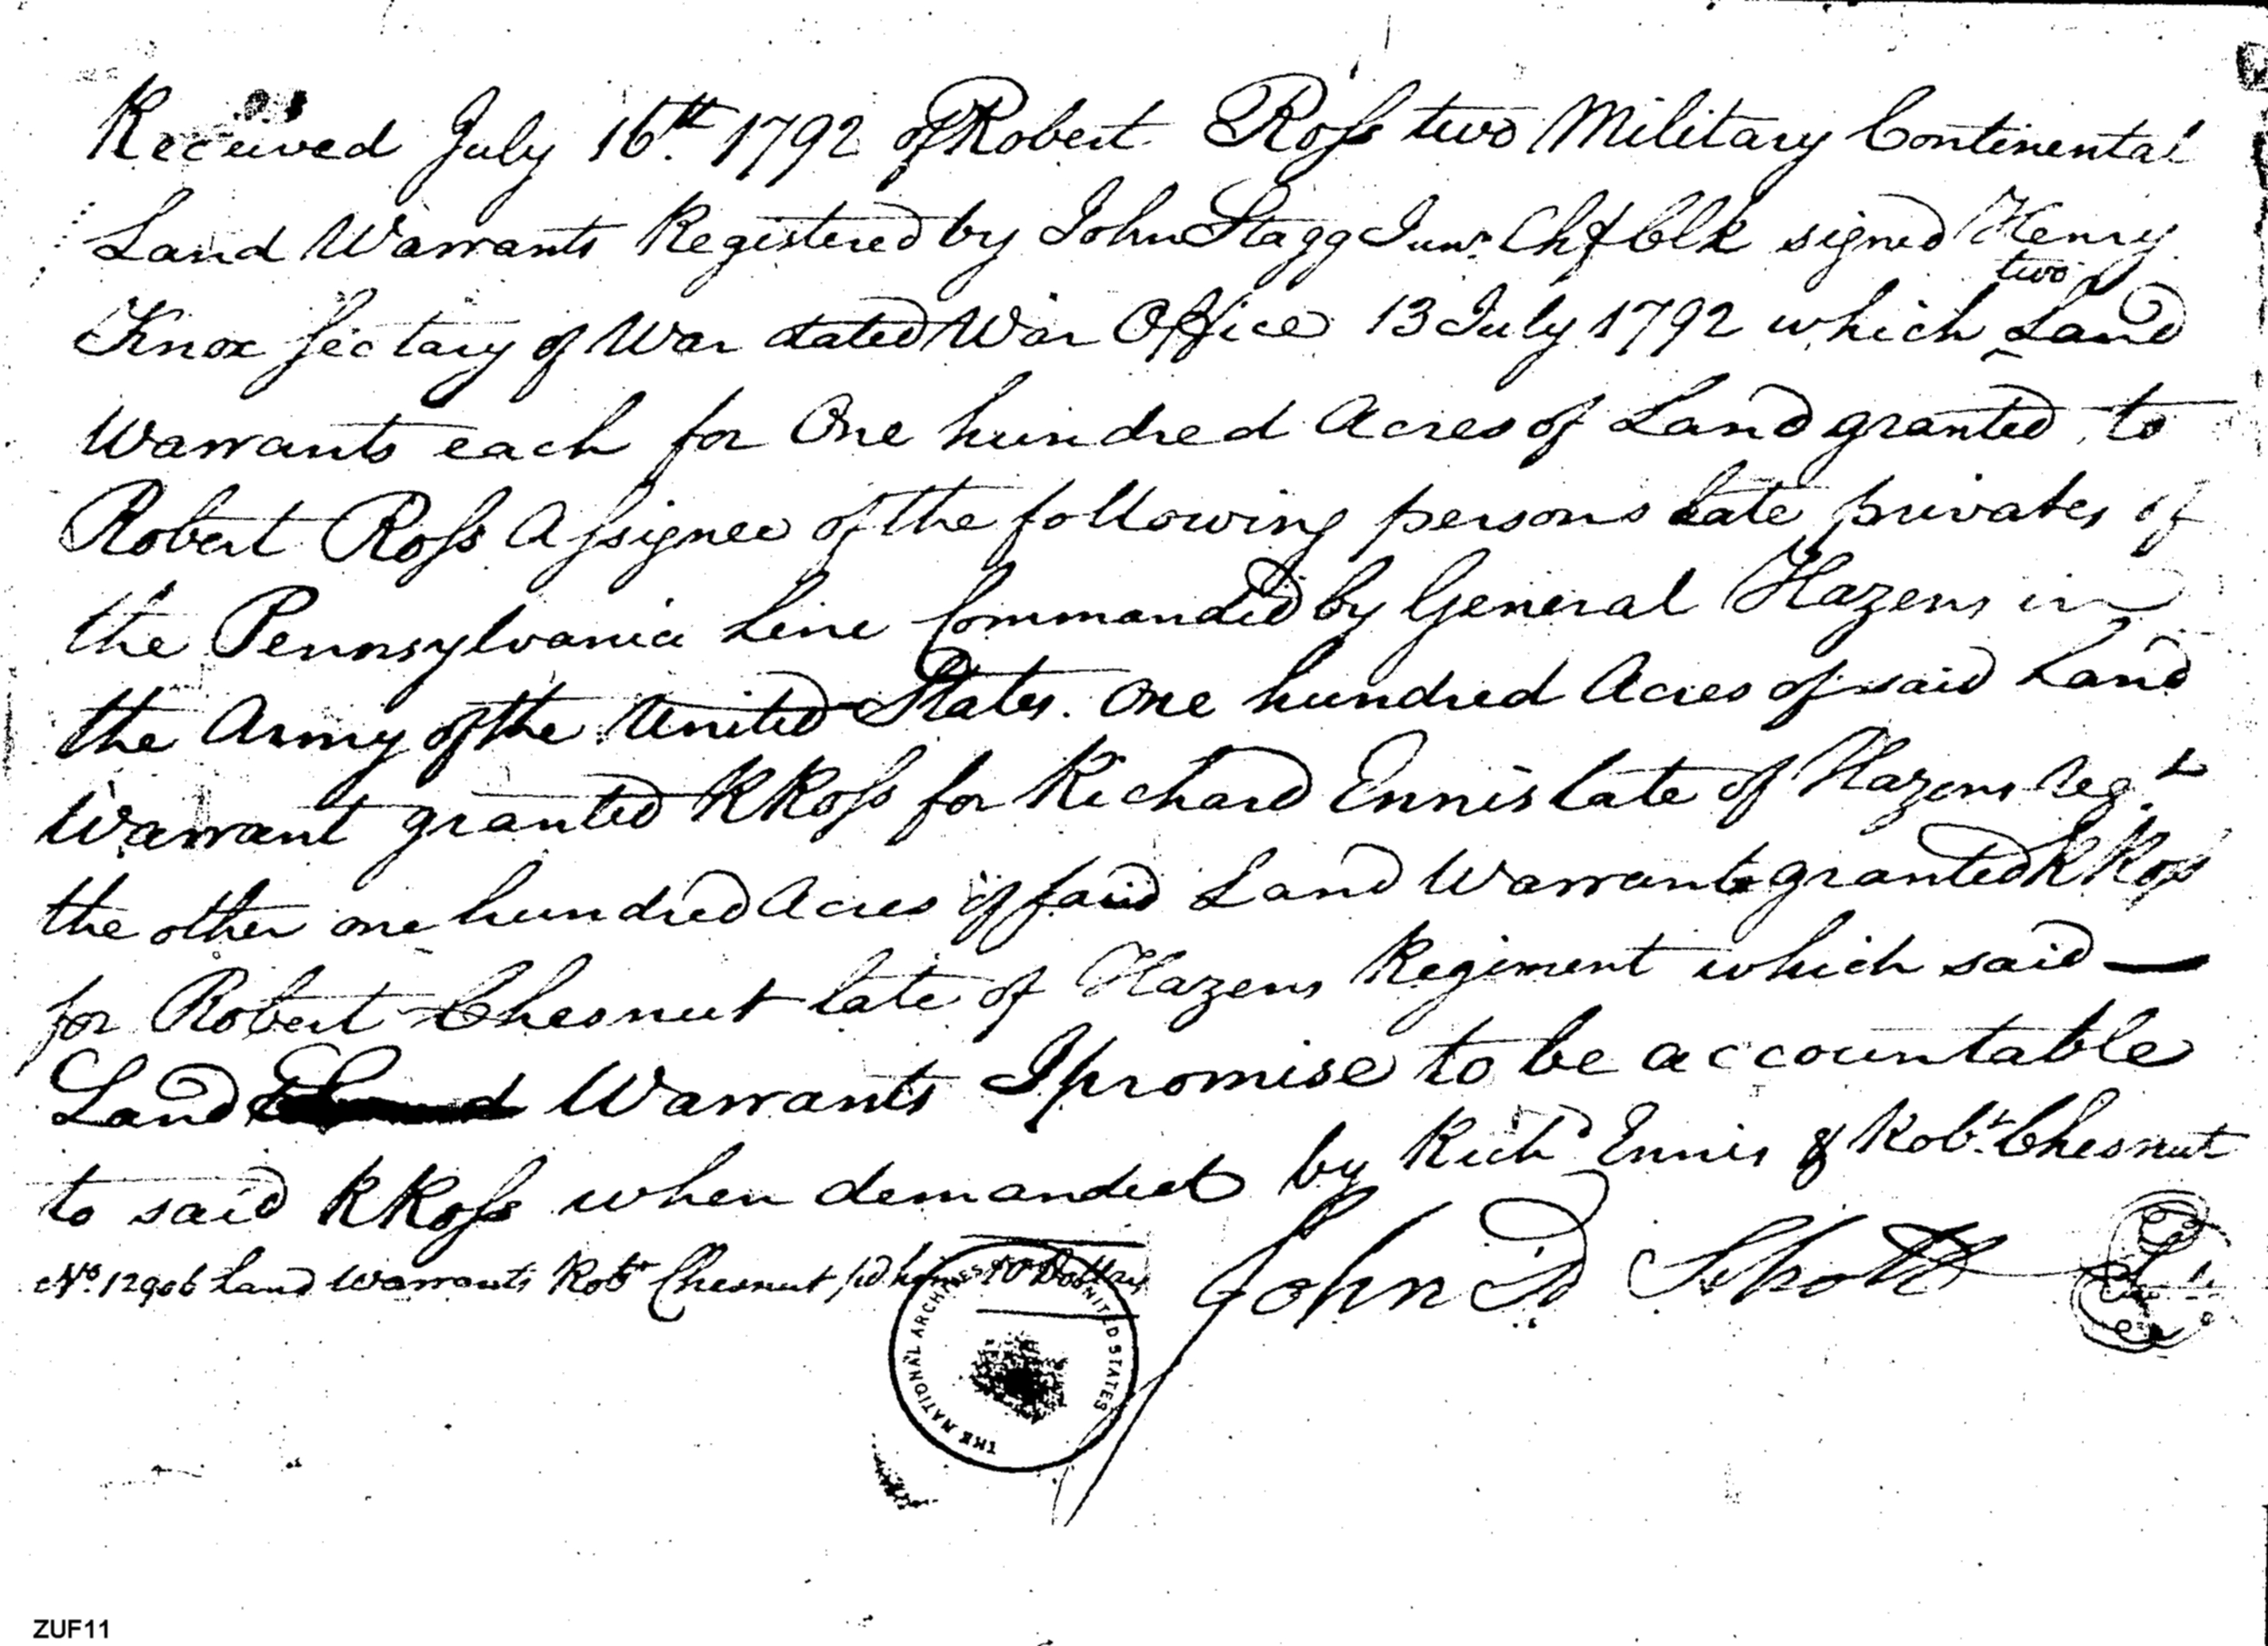 Received July 16th. 1792 of Robert Ross two Military Continental
Land Warrants Registered by John Stagg Junr. Chf Clk signed Henry
Knox Sectary of War dated War Office 13 July 1792 which two Land
Warrants each for One hundred Acres of Land granted to
Robert Ross Assignee of the following persons late privates of
the Pennsylvania Line Commanded by General Hazens in
the Army of the United States. One hundred Acres of said Land
Warrant granted R Ross for Richard Ennis late of Hazens Regt.
the other one hundred Acres of said Land Warrants granted R Ross
for Robert Chesnut late of Hazens Regiment which said
Land Warrants I promise to be accountable
to said R Ross when demanded by Richd Ennis & Robt. Chesnut
No. 12906 Land Warrants Robt Chesnut
John D Schott
THE NATIONAL ARCHIVES UNITED STATES
ZUF11